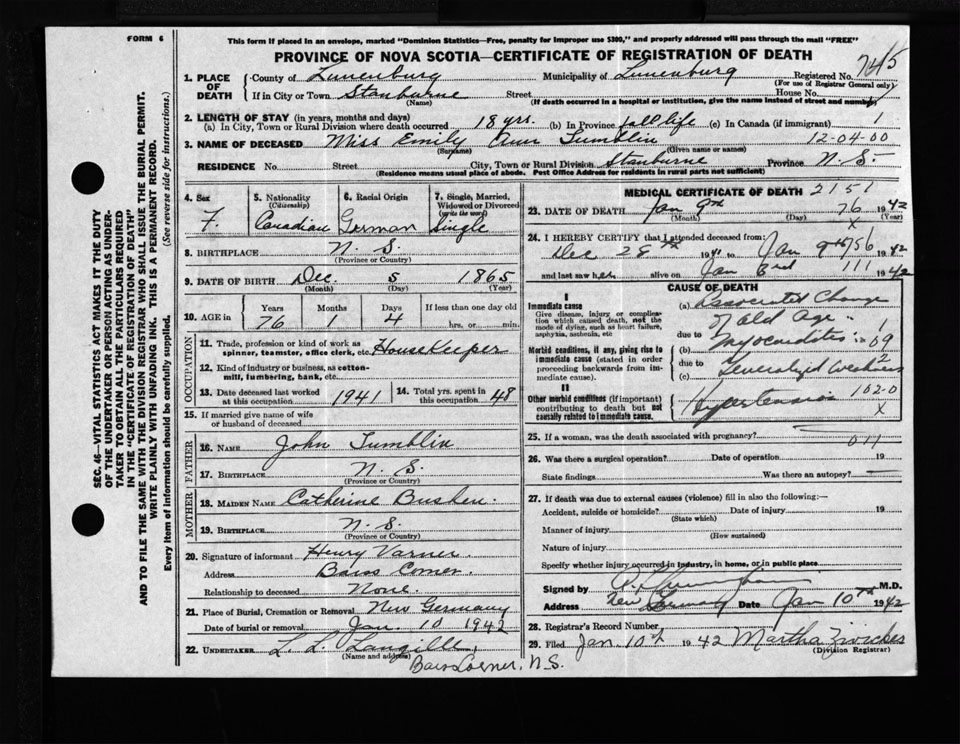 FORM 6
This form if placed in an envelope, marked "Dominion Statistics—Free, penalty for improper use $300," and properly addressed will pass through the mail "FREE"
PROVINCE OF NOVA SCOTIA—CERTIFICATE OF REGISTRATION OF DEATH
1. PLACE OF DEATH
County of Lunenburg Municipality of Lunenburg Registered No. 7415
(For use of Registrar General only)
If in City or Town Stanburne Street House No.
(Name) (If death occurred in a hospital or institution, give the name instead of street and number)
2. LENGTH OF STAY (in years, months and days)
(a) In City, Town or Rural Division where death occurred 18 yrs. (b) In Province full life (c) In Canada (if immigrant) 1
3. NAME OF DECEASED Miss Emily Ann Tumblin 12-04-00
(Surname) (Given name or names)
RESIDENCE No. Street City, Town or Rural Division Stanburne Province N.S.
(Residence means usual place of abode. Post Office Address for residents in rural parts not sufficient)
SEC. 46—VITAL STATISTICS ACT MAKES IT THE DUTY
OF THE UNDERTAKER OR PERSON ACTING AS UNDER-
TAKER TO OBTAIN ALL THE PARTICULARS REQUIRED
IN THE "CERTIFICATE OF REGISTRATION OF DEATH"
AND TO FILE THE SAME WITH THE DIVISION REGISTRAR WHO SHALL ISSUE THE BURIAL PERMIT.
WRITE PLAINLY WITH UNFADING INK. THIS IS A PERMANENT RECORD.
Every item of information should be carefully supplied. (See reverse side for instructions.)
4. Sex
F.
5. Nationality
(Citizenship)
Canadian
6. Racial Origin
German
7. Single, Married,
Widowed or Divorced
(write the word)
Single
8. BIRTHPLACE N.S.
(Province or Country)
9. DATE OF BIRTH Dec. 5 1865
(Month) (Day) (Year)
10. AGE in
Years Months Days If less than one day old
76 1 4 hrs. or min.
OCCUPATION
11. Trade, profession or kind of work as
spinner, teamster, office clerk, etc. Housekeeper
12. Kind of industry or business, as cotton-
mill, lumbering, bank, etc.
13. Date deceased last worked
at this occupation 1941
14. Total yrs. spent in
this occupation 48
15. If married give name of wife
or husband of deceased
FATHER
16. NAME John Tumblin
17. BIRTHPLACE N.S.
MOTHER
18. MAIDEN NAME Catherine Bushen.
19. BIRTHPLACE N.S.
(Province or Country)
20. Signature of informant Henry Varner.
Address Barss Corner.
Relationship to deceased None.
21. Place of Burial, Cremation or Removal New Germany
Date of burial or removal Jan. 10 1942
22. UNDERTAKER L. L. Langille,
(Name and address)
Barss Corner, N.S.
MEDICAL CERTIFICATE OF DEATH 2151
23. DATE OF DEATH Jan 9th 76 1942
(Month) (Day) (Year)
x
24. I HEREBY CERTIFY that I attended deceased from:
Dec 28th 1941 to Jan 9th 756 1942
and last saw her alive on Jan 3rd 111 1942
CAUSE OF DEATH
I
Immediate cause
Give disease, injury or complication which caused death, not the mode of dying, such as heart failure, asphyxia, asthenia, etc
(a) Associated Change
of old Age.
due to
Morbid conditions, if any, giving rise to immediate cause (stated in order proceeding backwards from immediate cause).
(b) Myocarditis 09
due to
(c) Generalized Weakness 12
II
Other morbid conditions (if important) contributing to death but not causally related to immediate cause.
Hypertension 102-0
x
25. If a woman, was the death associated with pregnancy? 011
26. Was there a surgical operation? Date of operation 19
State findings Was there an autopsy?
27. If death was due to external causes (violence) fill in also the following:—
Accident, suicide or homicide? Date of injury 19
(State which)
Manner of injury
(How sustained)
Nature of injury
Specify whether injury occurred in industry, in home, or in public place
Signed by M.D.
Address New Germany Date Jan 10th 1942
28. Registrar's Record Number
29. Filed Jan 10th 1942 Martha Zwicker
(Division Registrar)